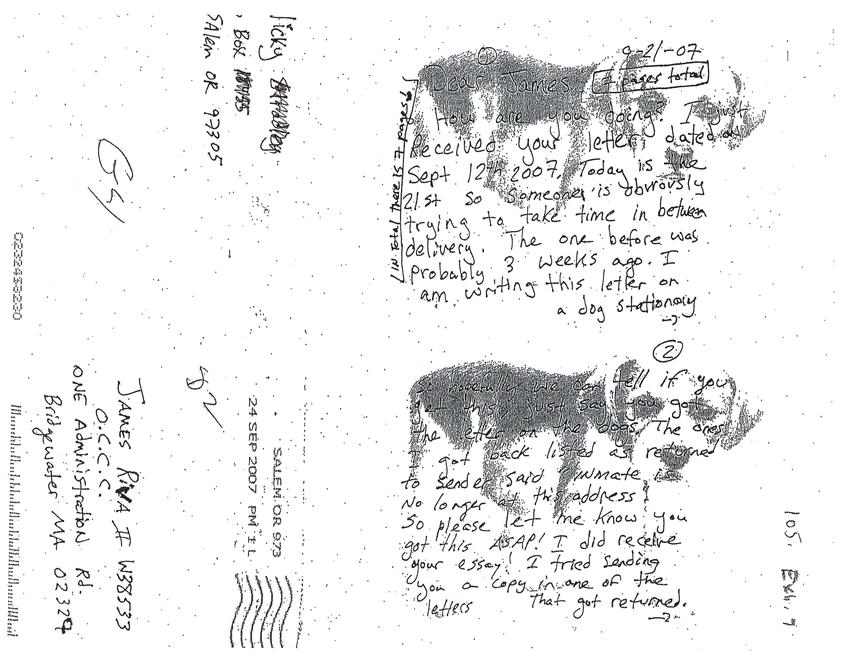 ①
9-21-07
Dear James
7 pages total
IN total there is 7 pages!
How are you doing? I just
Received your letter dated on
Sept 12th 2007. Today is the
21st so someone is obviously
trying to take time in between
delivery. The one before was
probably 3 weeks ago. I
am writing this letter on
a dog stationary
→
②
So hopefully we can tell if you
get this. Just say you got
the letter on the dogs. The ones
I got back listed as returned
to sender said "INmate is
No longer at this address"
So please let me know you
got this ASAP! I did receive
your essay! I tried sending
you a copy in one of the
letters That got returned.
→
105. Exh. 9
Box
SAlem OR 97305
0232453230
SALEM OR 973
24 SEP 2007 PM 1 L
JAMES RIVA II W38533
O.C.C.C.
ONE Administration Rd.
Bridgewater MA 02324